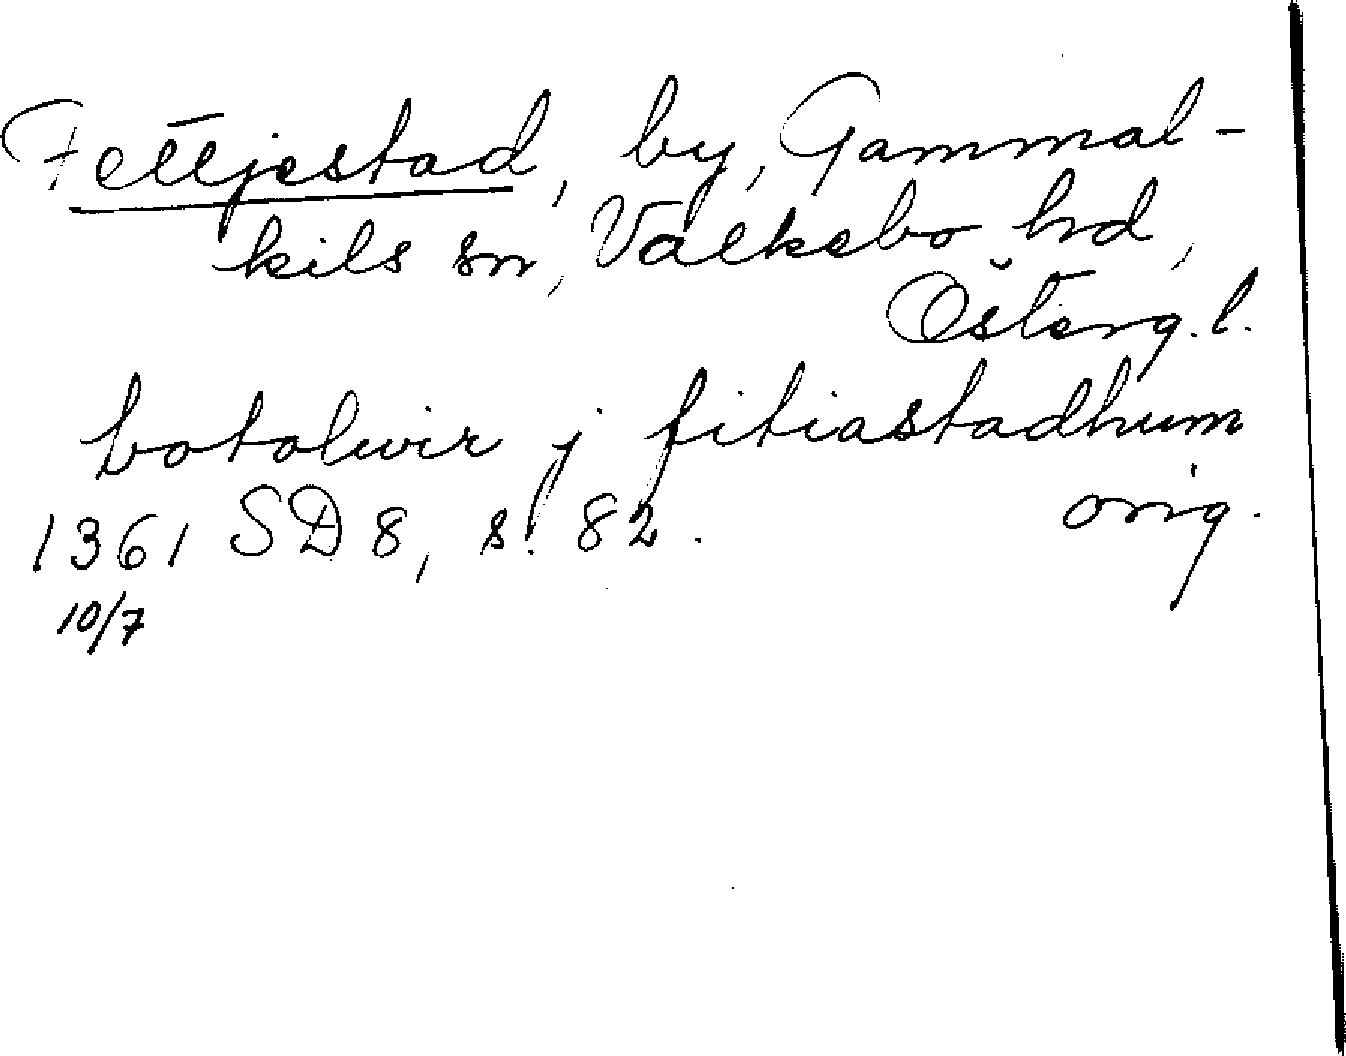 Fettjestad, by, Gammal-
kils sn, Valkebo hd,
Österg.l.
botolwir j fitiastadhum
1361 SD 8, s. 82. orig.
10/7